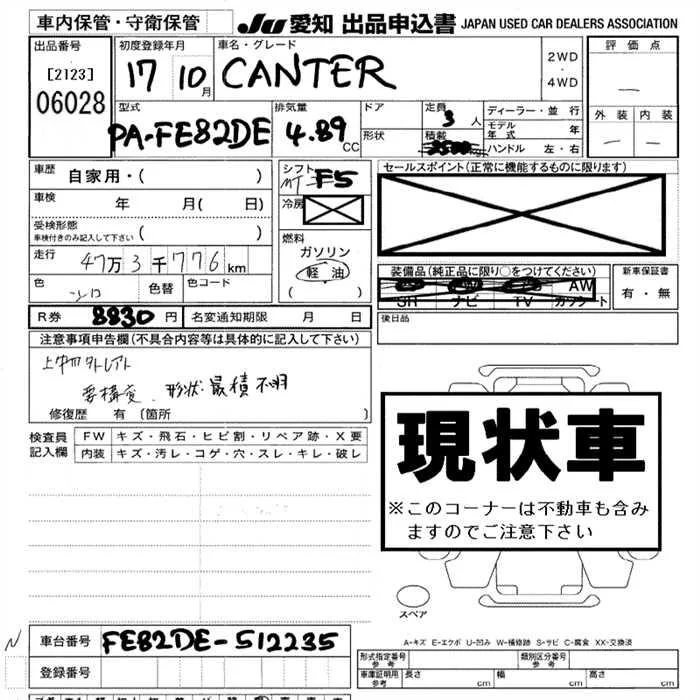 車内保管・守衛保管 JU 愛知 出品申込書 JAPAN USED CAR DEALERS ASSOCIATION
出品番号 初度登録年月 車名・グレード 評価点
[2123] 17 10月 CANTER 2WD・4WD —
06028 外装 内装
型式 排気量 ドア 定員 3人 ディーラー・並行
PA-FE82DE 4.89 CC 形状 積載 モデル年式 年 — —
ハンドル 左・右
車歴 自家用・( ) シフト MT F5 セールスポイント(正常に機能するものに限ります)
車検 年 月( 日) 冷房
受検形態
車検付きのみ記入して下さい ( ) 燃料
走行 47万3千776km ガソリン
軽油
色 色替 色コード ( ) 装備品(純正品に限り○をつけてください) 新車保証書
SR ナビ TV AW カセット 有・無
R券 8830円 名変通知期限 月 日 後日品
注意事項申告欄(不具合内容等は具体的に記入して下さい)
要構変、形状・最積不明
修復歴 有 〔箇所 〕
現状車
※このコーナーは不動車も含み
ますのでご注意下さい
検査員 FW キズ・飛石・ヒビ割・リペア跡・X要
記入欄 内装 キズ・汚レ・コゲ・穴・スレ・キレ・破レ
スペア
A-キズ E-エクボ U-凹み W-補修跡 S-サビ C-腐食 XX-交換済
N 車台番号 FE82DE-512235
登録番号
形式指定番号 参考 類別区分番号 参考
車庫証明用 参考 長さ cm 幅 cm 高さ cm